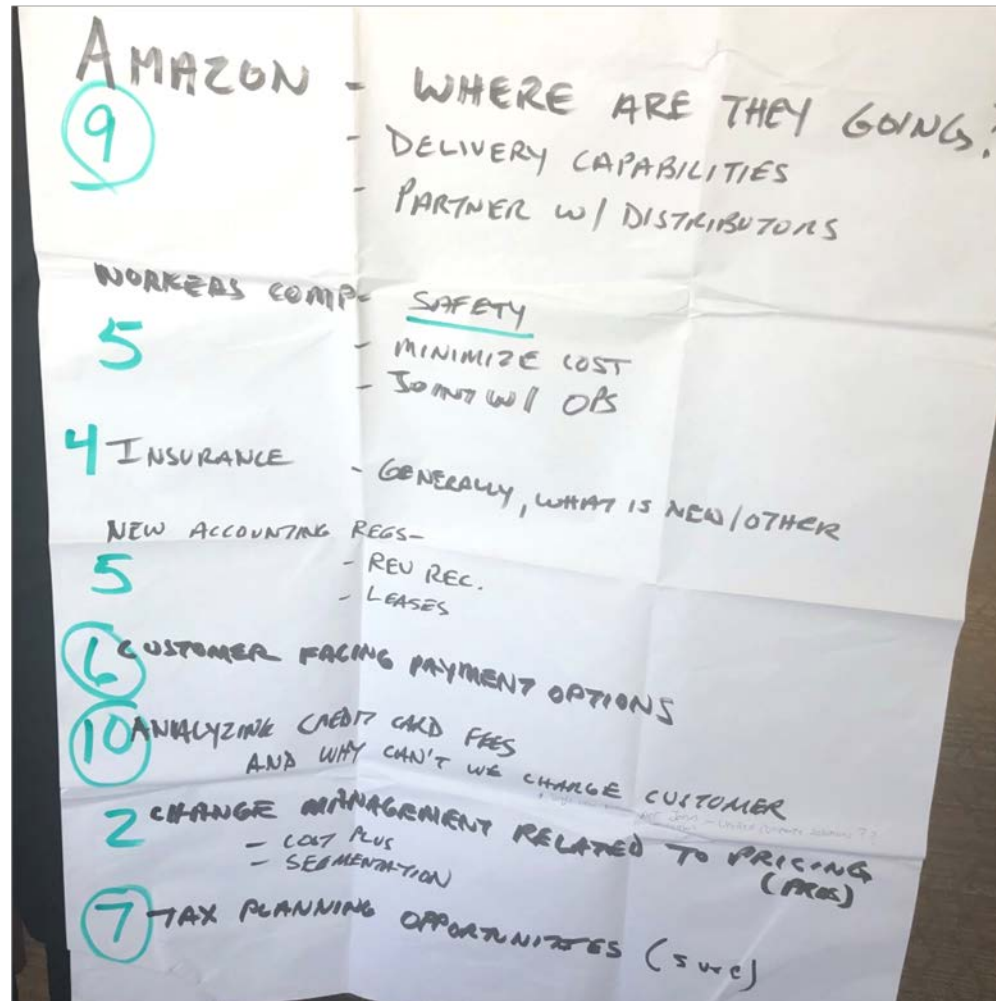 AMAZON - WHERE ARE THEY GOING?
9
- DELIVERY CAPABILITIES
- PARTNER W/ DISTRIBUTORS
WORKERS COMP- SAFETY
5
- MINIMIZE COST
- JOINT W/ OPS
4 INSURANCE - GENERALLY, WHAT IS NEW/OTHER
NEW ACCOUNTING REGS-
5
- REV REC.
- LEASES
6 CUSTOMER FACING PAYMENT OPTIONS
10 ANALYZING CREDIT CARD FEES
AND WHY CAN'T WE CHARGE CUSTOMER
2 CHANGE MANAGEMENT RELATED TO PRICING
- COST PLUS (PRES)
- SEGMENTATION
7 TAX PLANNING OPPORTUNITIES (sure)